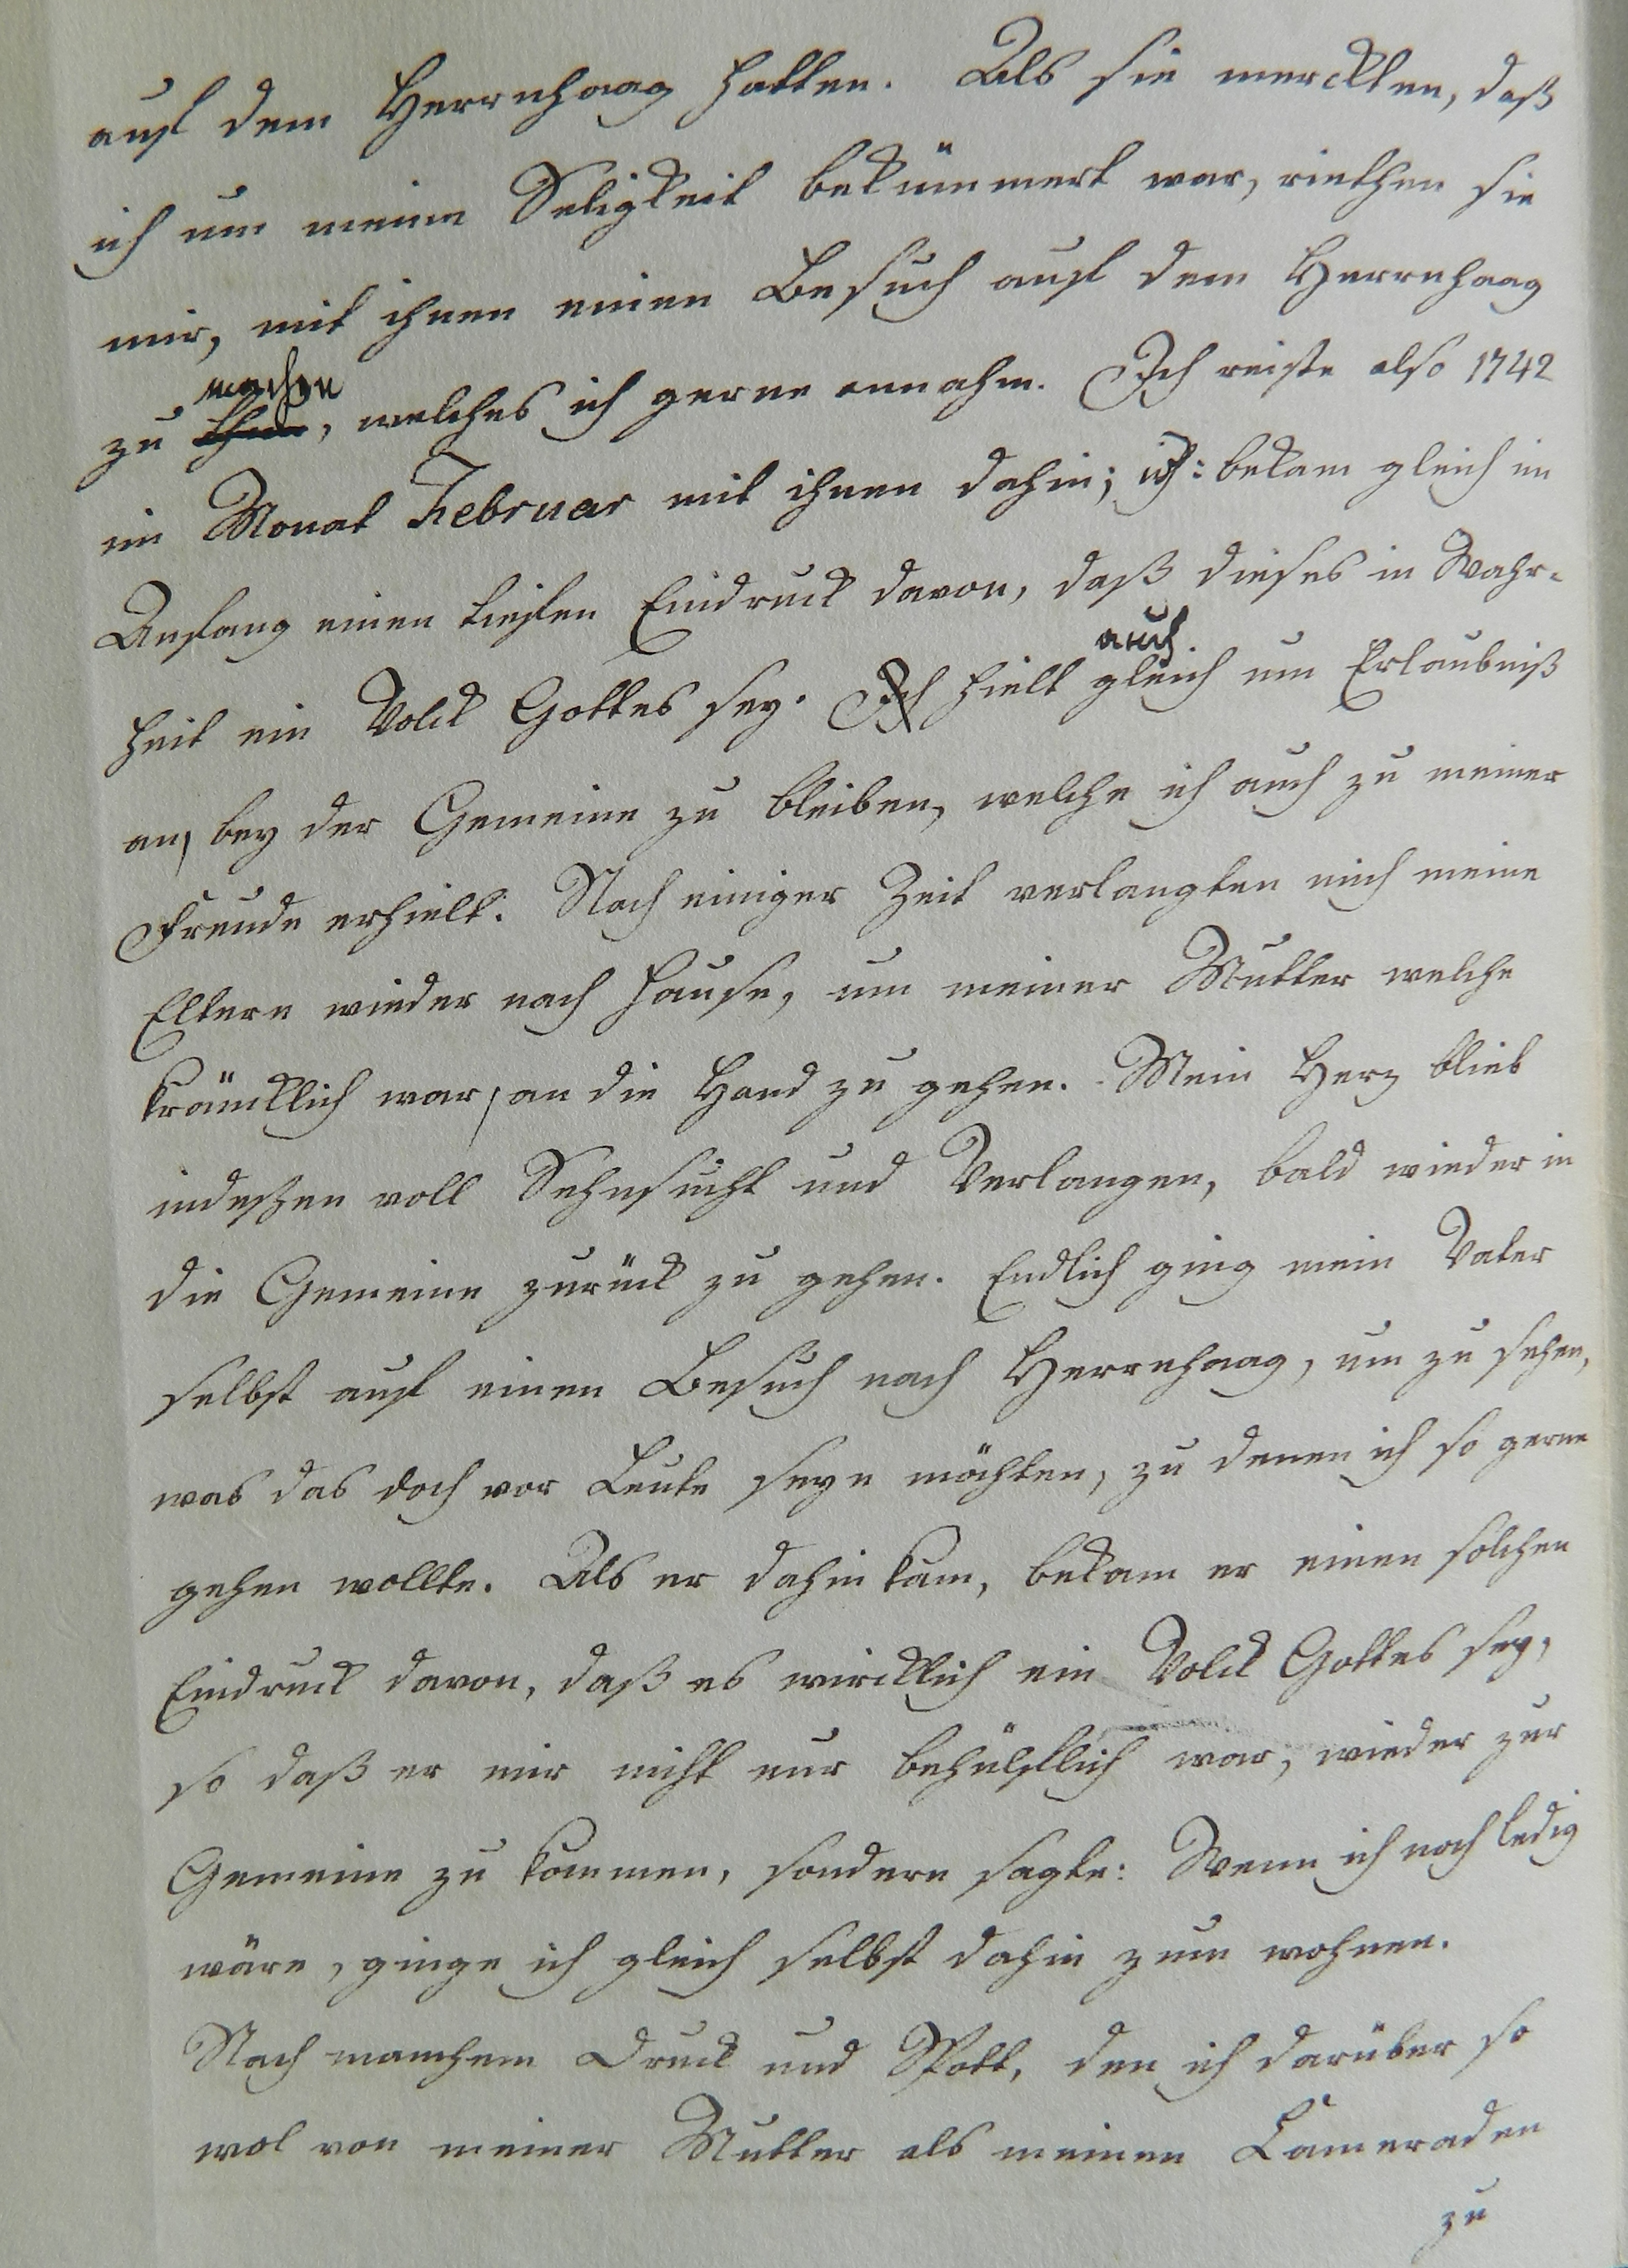 auf dem Herrnhaag hatten. Als sie merckten, daß
ich um meine Seligkeit bekümmert war, riethen sie
mir, mit ihnen einen Besuch auf dem Herrnhaag
machen
zu thun, welches ich gerne annahm. Ich reiste also 1742
im Monat Februar mit ihnen dahin; ich bekam gleich im
Anfang einen tiefen Eindruck davon, daß dieses in Wahr-
auch
heit ein Volck Gottes sey. Ich hielt gleich um Erlaubniß
an, bey der Gemeine zu bleiben, welche ich auch zu meiner
Freude erhielt. Nach einiger Zeit verlangten mich meine
Eltern wieder nach Hause, um meiner Mutter welche
kräncklich war, an die Hand zu gehen. Mein Herz blieb
indeßen voll Sehnsucht und Verlangen, bald wieder in
die Gemeine zurück zu gehen. Endlich ging mein Vater
selbst auf einen Besuch nach Herrnhaag, um zu sehen,
was das doch vor Leute seyn möchten, zu denen ich so gerne
gehen wollte. Als er dahin kam, bekam er einen solchen
Eindruck davon, daß es wircklich ein Volck Gottes sey,
so daß er mir nicht nur behülflich war, wieder zur
Gemeine zu kommen, sondern sagte: Wenn ich noch ledig
wäre, ginge ich gleich selbst dahin zum wohnen.
Nach manchem Druck und Spott, den ich darüber so
wol von meiner Mutter als meinen Cameraden
zu